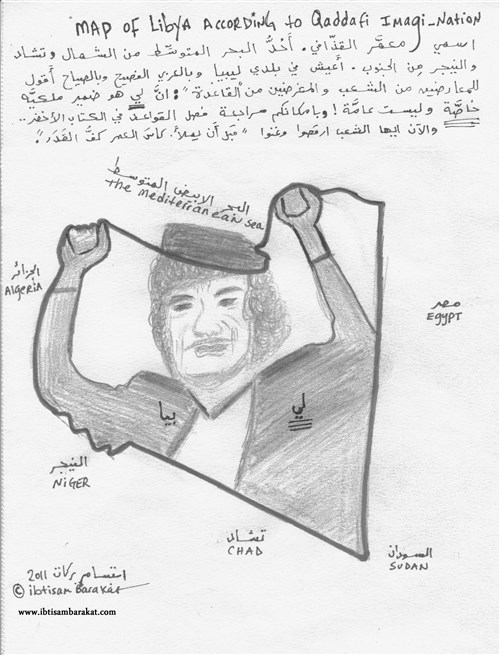 MAP OF LIBYA ACCORDING to Qaddafi Imagi-Nation
اسمي معمَّر القذّافي. أَحُدُّ البحر المتوسّط من الشمال وتشاد
والنيجر من الجنوب. أعيش في بلدي ليبيا وبالعربي الفصيح وبالصياح أقول
للمعارضين من الشعب والمعترضين من القاعدة": إنَّ لي هو ضمير ملكيّه
خاصَّة وليست عامَّة! وبإمكانكم مراجعة فصل القواعد في الكتاب الأخضر..
والآن ايها الشعب ارقصوا وغنوا "قبل أن يملأ كاس العمر كفُّ القَدَر".
البحر الابيض المتوسط
the mediterranean sea
الجزائر
ALGERIA
مصر
EGYPT
لي
بيا
النيجر
NIGER
تشاد
CHAD
السودان
SUDAN
ابتسام بركات 2011
© ibtisam Barakat
www.ibtisambarakat.com